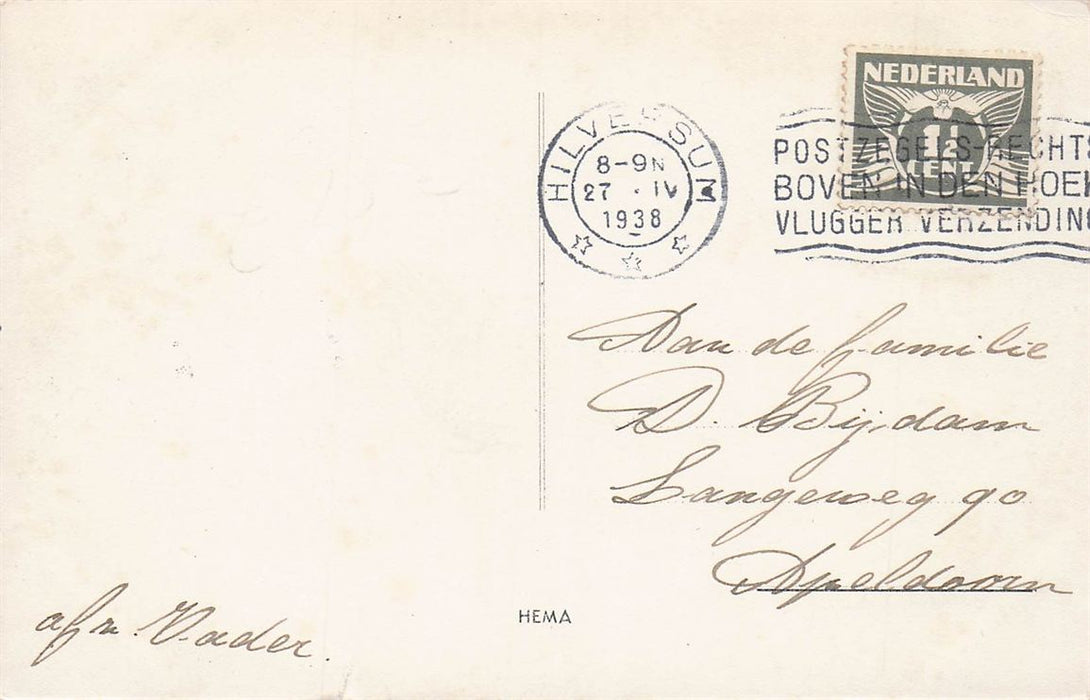 NEDERLAND
1½
CENT
HILVERSUM
8-9N
27 · IV
1938
POSTZEGELS-RECHTS
BOVEN IN DEN HOEK
VLUGGER VERZENDING
Aan de familie
D. Bijdam
Langeweg 90
Apeldoorn
HEMA
afz. Vader.